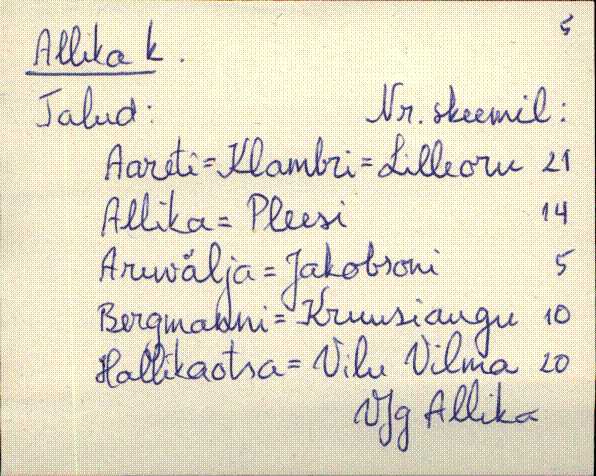 5
Allika k.
Talud: Nr. skeemil:
Aareti = Klambri = Lilleoru 21
Allika = Pleesi 14
Aruvälja = Jakobsoni 5
Bergmanni = Kruusiaugu 10
Hallikaotsa = Vilu Vilma 20
VJg Allika